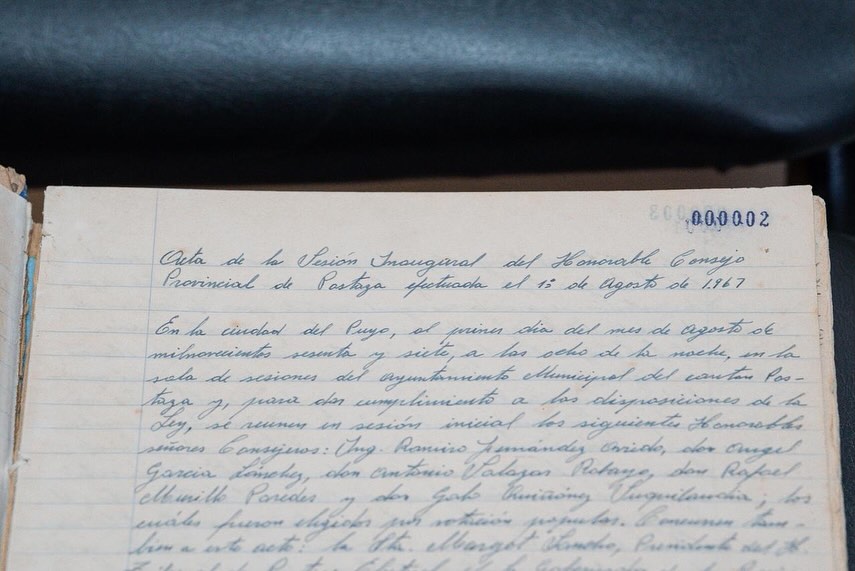 000002
Acta de la Sesión Inaugural del Honorable Consejo
Provincial de Pastaza efectuada el 1º de Agosto de 1.967
En la ciudad del Puyo, al primer día del mes de agosto de
milnovecientos sesenta y siete, a las ocho de la noche, en la
sala de sesiones del ayuntamiento Municipal del cantón Pas-
taza y, para dar cumplimiento a las disposiciones de la
Ley, se reunen en sesión inicial los siguientes Honorables
señores Consejeros: Ing. Ramiro Fernández Oviedo, don Angel
García Sánchez, don Antonio Salazar Robayo, don Rafael
Murillo Paredes y don Galo Quiñónez; los
cuáles fueron elegidos por votación popular. Concurren tam-
bien a este acto: la Sta. Margot Sancho, Presidente del H.